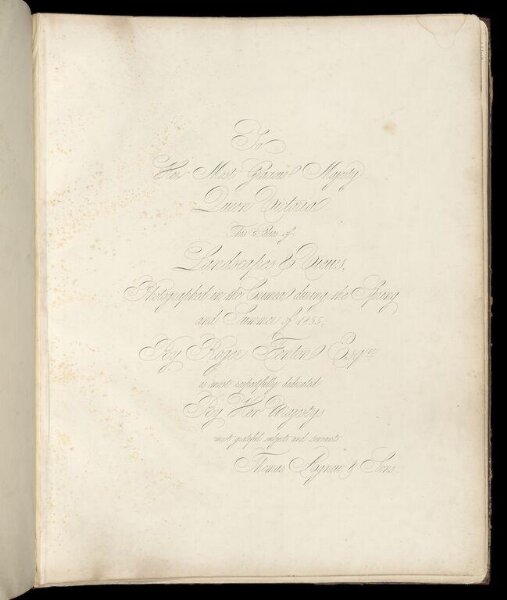 To
Her Most Gracious Majesty
Queen Victoria
This Series of
Landscapes & Scenes,
Photographed in the Crimea during the Spring
and Summer of 1855,
By Roger Fenton Esqre
is most respectfully dedicated
By Her Majesty's
most grateful subjects and servants
Thomas Agnew & Sons.